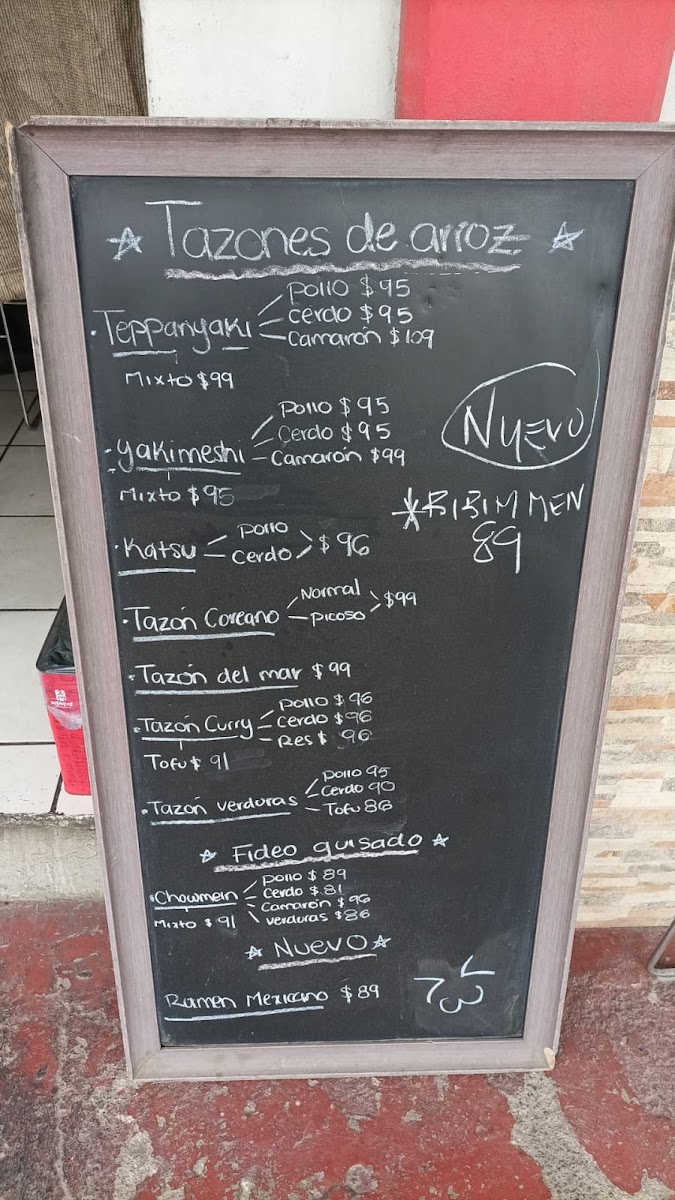 Tazones de arroz
Pollo $95
Teppanyaki Cerdo $95
Camarón $109
Mixto $99
Pollo $95
Yakimeshi Cerdo $95
Camarón $99
Mixto $95
NUEVO
BIBIM MEN
89
Katsu Pollo Cerdo $96
Tazón Coreano Normal Picoso $99
Tazón del mar $99
Pollo $96
Tazón Curry Cerdo $96
Res $ 96
Tofu $ 91
Pollo 95
Cerdo 90
Tazón verduras Tofu 86
Fideo guisado
Pollo $ 89
Chowmein Cerdo $ 81
Camarón $ 96
Mixto $ 91 verduras $86
NUEVO
Ramen Mexicano $89